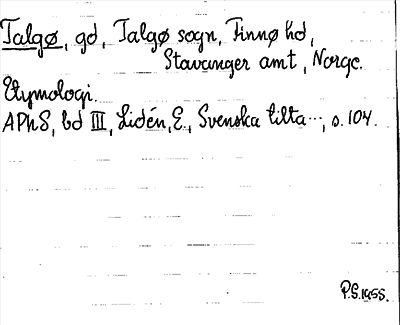 Talgø, gd, Talgø sogn, Finnø hd,
Stavanger amt, Norge.
Etymologi.
APhS, bd III, Lidén, E., Svenska tilta..., s. 104.
P.S. 1955.